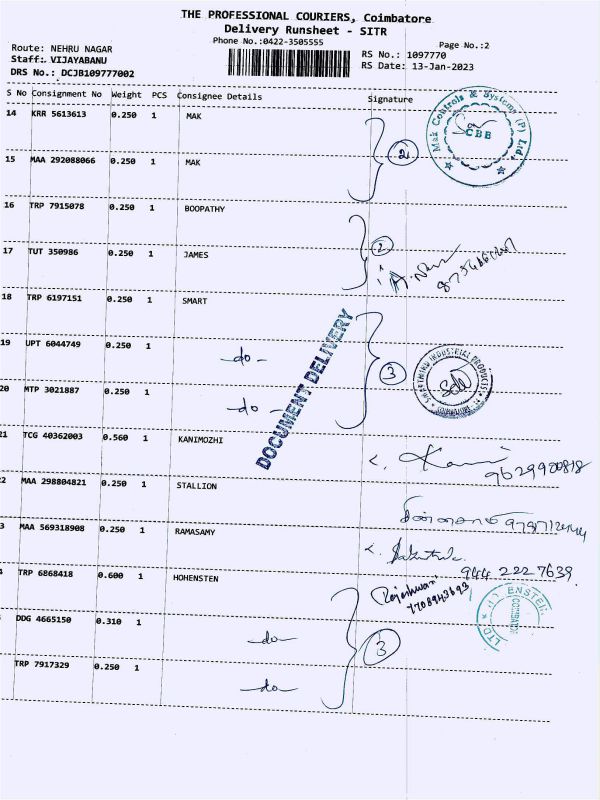 THE PROFESSIONAL COURIERS, Coimbatore
Delivery Runsheet - SITR
Phone No.:0422-3505555
Page No.:2
Route: NEHRU NAGAR
RS No.: 1097770
Staff: VIJAYABANU
RS Date: 13-Jan-2023
DRS No.: DCJB109777002
S No Consignment No Weight PCS Consignee Details Signature
14 KRR 5613613 0.250 1 MAK
Mak Controls & Systems (P) Ltd.
CBE
2
15 MAA 292088066 0.250 1 MAK
16 TRP 7915078 0.250 1 BOOPATHY
2
17 TUT 350986 0.250 1 JAMES
18 TRP 6197151 0.250 1 SMART
DOCUMENT DELIVERY
19 UPT 6044749 0.250 1 -do-
3
INDUSTRIAL PRODUCTS
20 MTP 3021887 0.250 1 -do-
21 TCG 40362003 0.560 1 KANIMOZHI
9629920818
2 MAA 298804821 0.250 1 STALLION
3 MAA 569318908 0.250 1 RAMASAMY
944 222 7639
4 TRP 6868418 0.600 1 HOHENSTEN
Rajeshwari
7708943693
ENSTEN
COIMBATORE
LTD
DDG 4665150 0.310 1 -do-
3
TRP 7917329 0.250 1 -do-